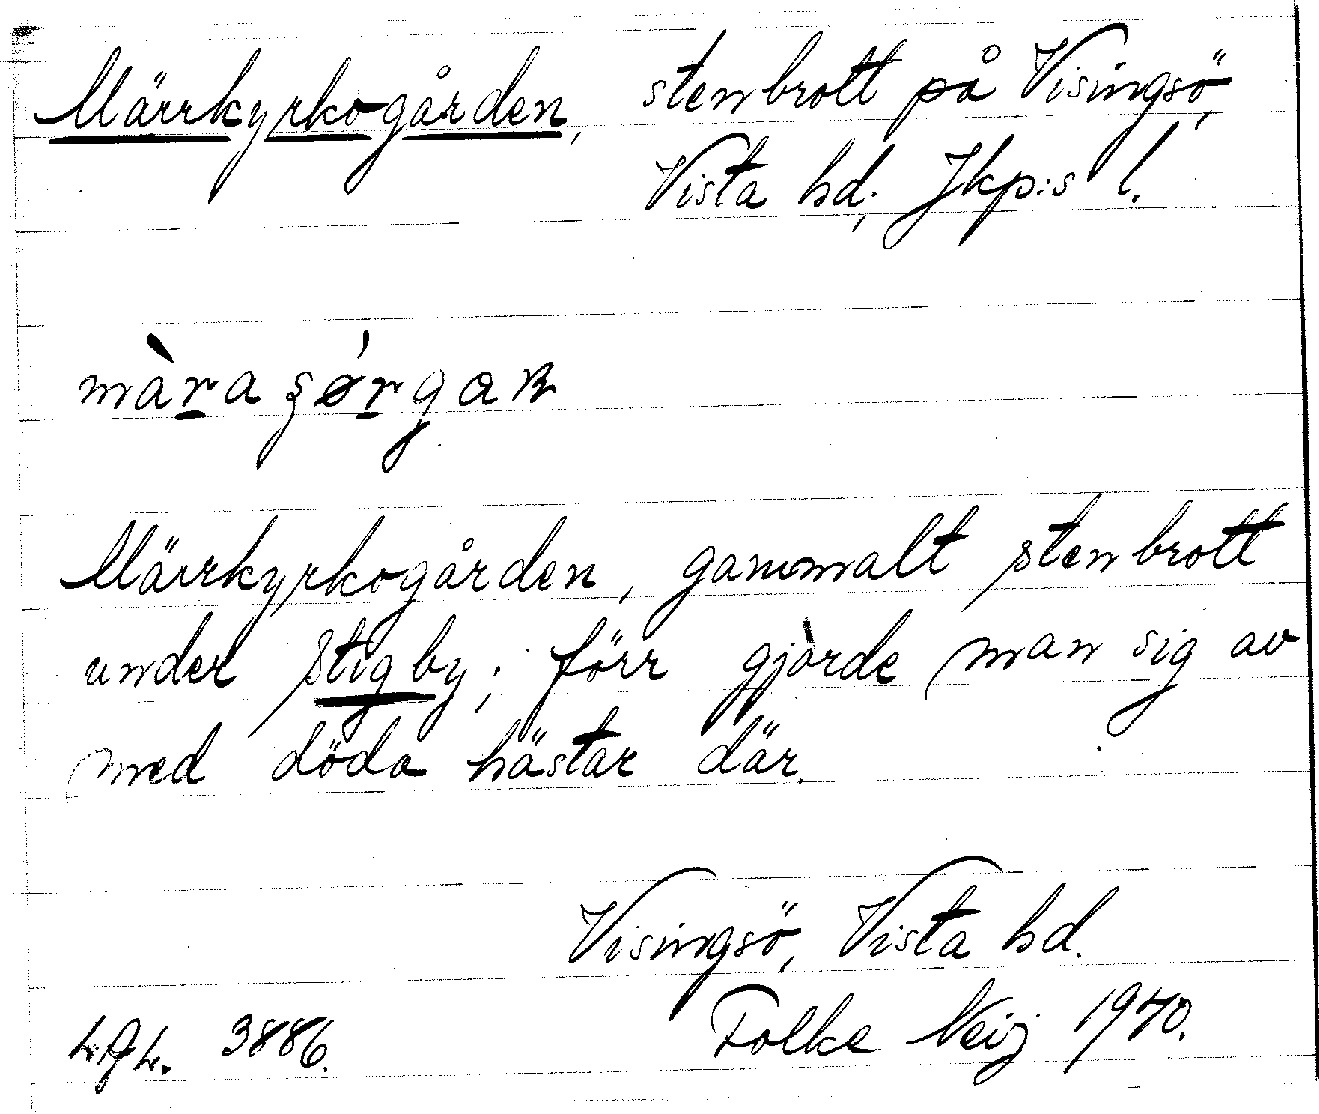 Märrkyrkogården, stenbrott på Visingsö,
Vista hd; Jkp:s l.
Märrkyrkogården, gammalt stenbrott
under Stigby; förr gjorde man sig av
med döda hästar där.
Visingsö, Vista hd.
3886. Folke Neij 1940.